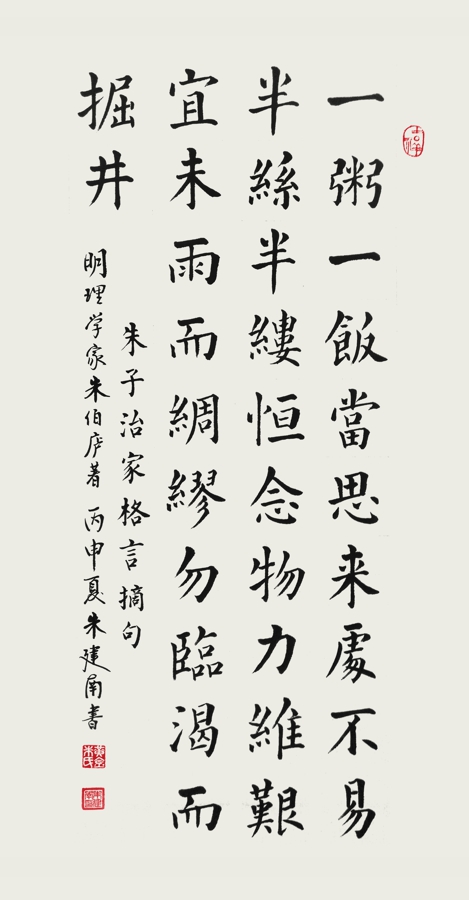 一粥一飯當思来處不易
半絲半縷恒念物力維艱
宜未雨而綢繆勿臨渴而
掘井
朱子治家格言摘句
明理学家朱伯庐著 丙申夏朱建書